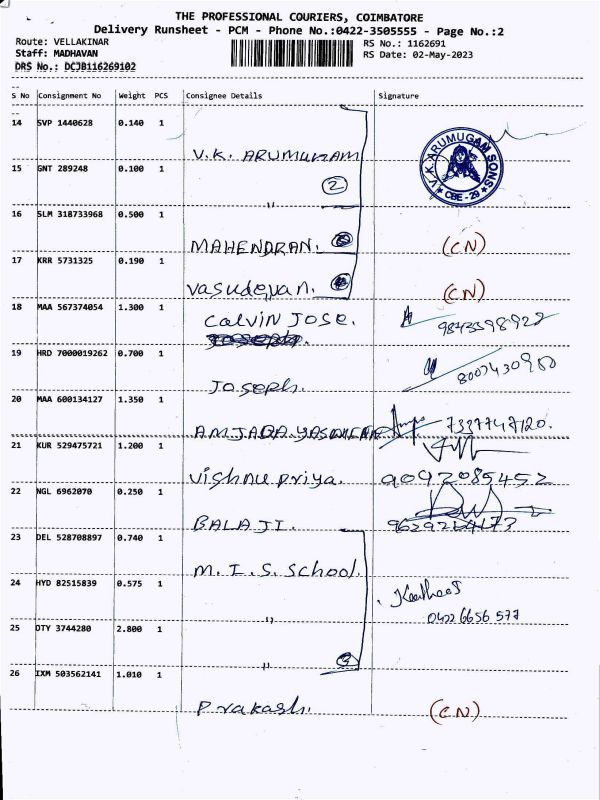 THE PROFESSIONAL COURIERS, COIMBATORE
Delivery Runsheet - PCM - Phone No.:0422-3505555 - Page No.:2
Route: VELLAKINAR
RS No.: 1162691
Staff: MADHAVAN
RS Date: 02-May-2023
DRS No.: DCJB116269102
S No Consignment No Weight PCS Consignee Details Signature
14 SVP 1440628 0.140 1
V.K. ARUMUGAM
V.K.ARUMUGAM SONS
CBE-29
15 GNT 289248 0.100 1
2
"
16 SLM 318733968 0.500 1
MAHENDRAN. (CN)
17 KRR 5731325 0.190 1
Vasudevan. (CN)
18 MAA 567374054 1.300 1
Calvin Jose.
9843598928
19 HRD 7000019262 0.700 1
Joseph.
20 MAA 600134127 1.350 1
7337747120.
21 KUR 529475721 1.200 1
Vishnu Priya. 9092085452
22 NGL 6962070 0.250 1
BALAJI.
23 DEL 528708897 0.740 1
M.I.S. School.
24 HYD 82515839 0.575 1
0422 6656 577
"
25 DTY 3744280 2.800 1
"
26 IXM 503562141 1.010 1
Prakash. (CN)